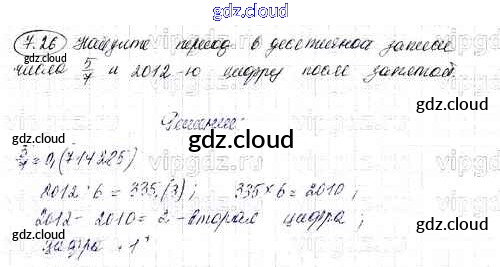 gdz.cloud
7.26 Найдите период в десятичной записи
gdz.cloud
числа 5/7 и 2012-ю цифру после запятой.
gdz.cloud
Решение:
gdz.cloud
5/7 = 0,(714285)
gdz.cloud
2012 : 6 = 335,(3); 335 × 6 = 2010;
2012 - 2010 = 2 - вторая цифра;
gdz.cloud
gdz.cloud
цифра "1"